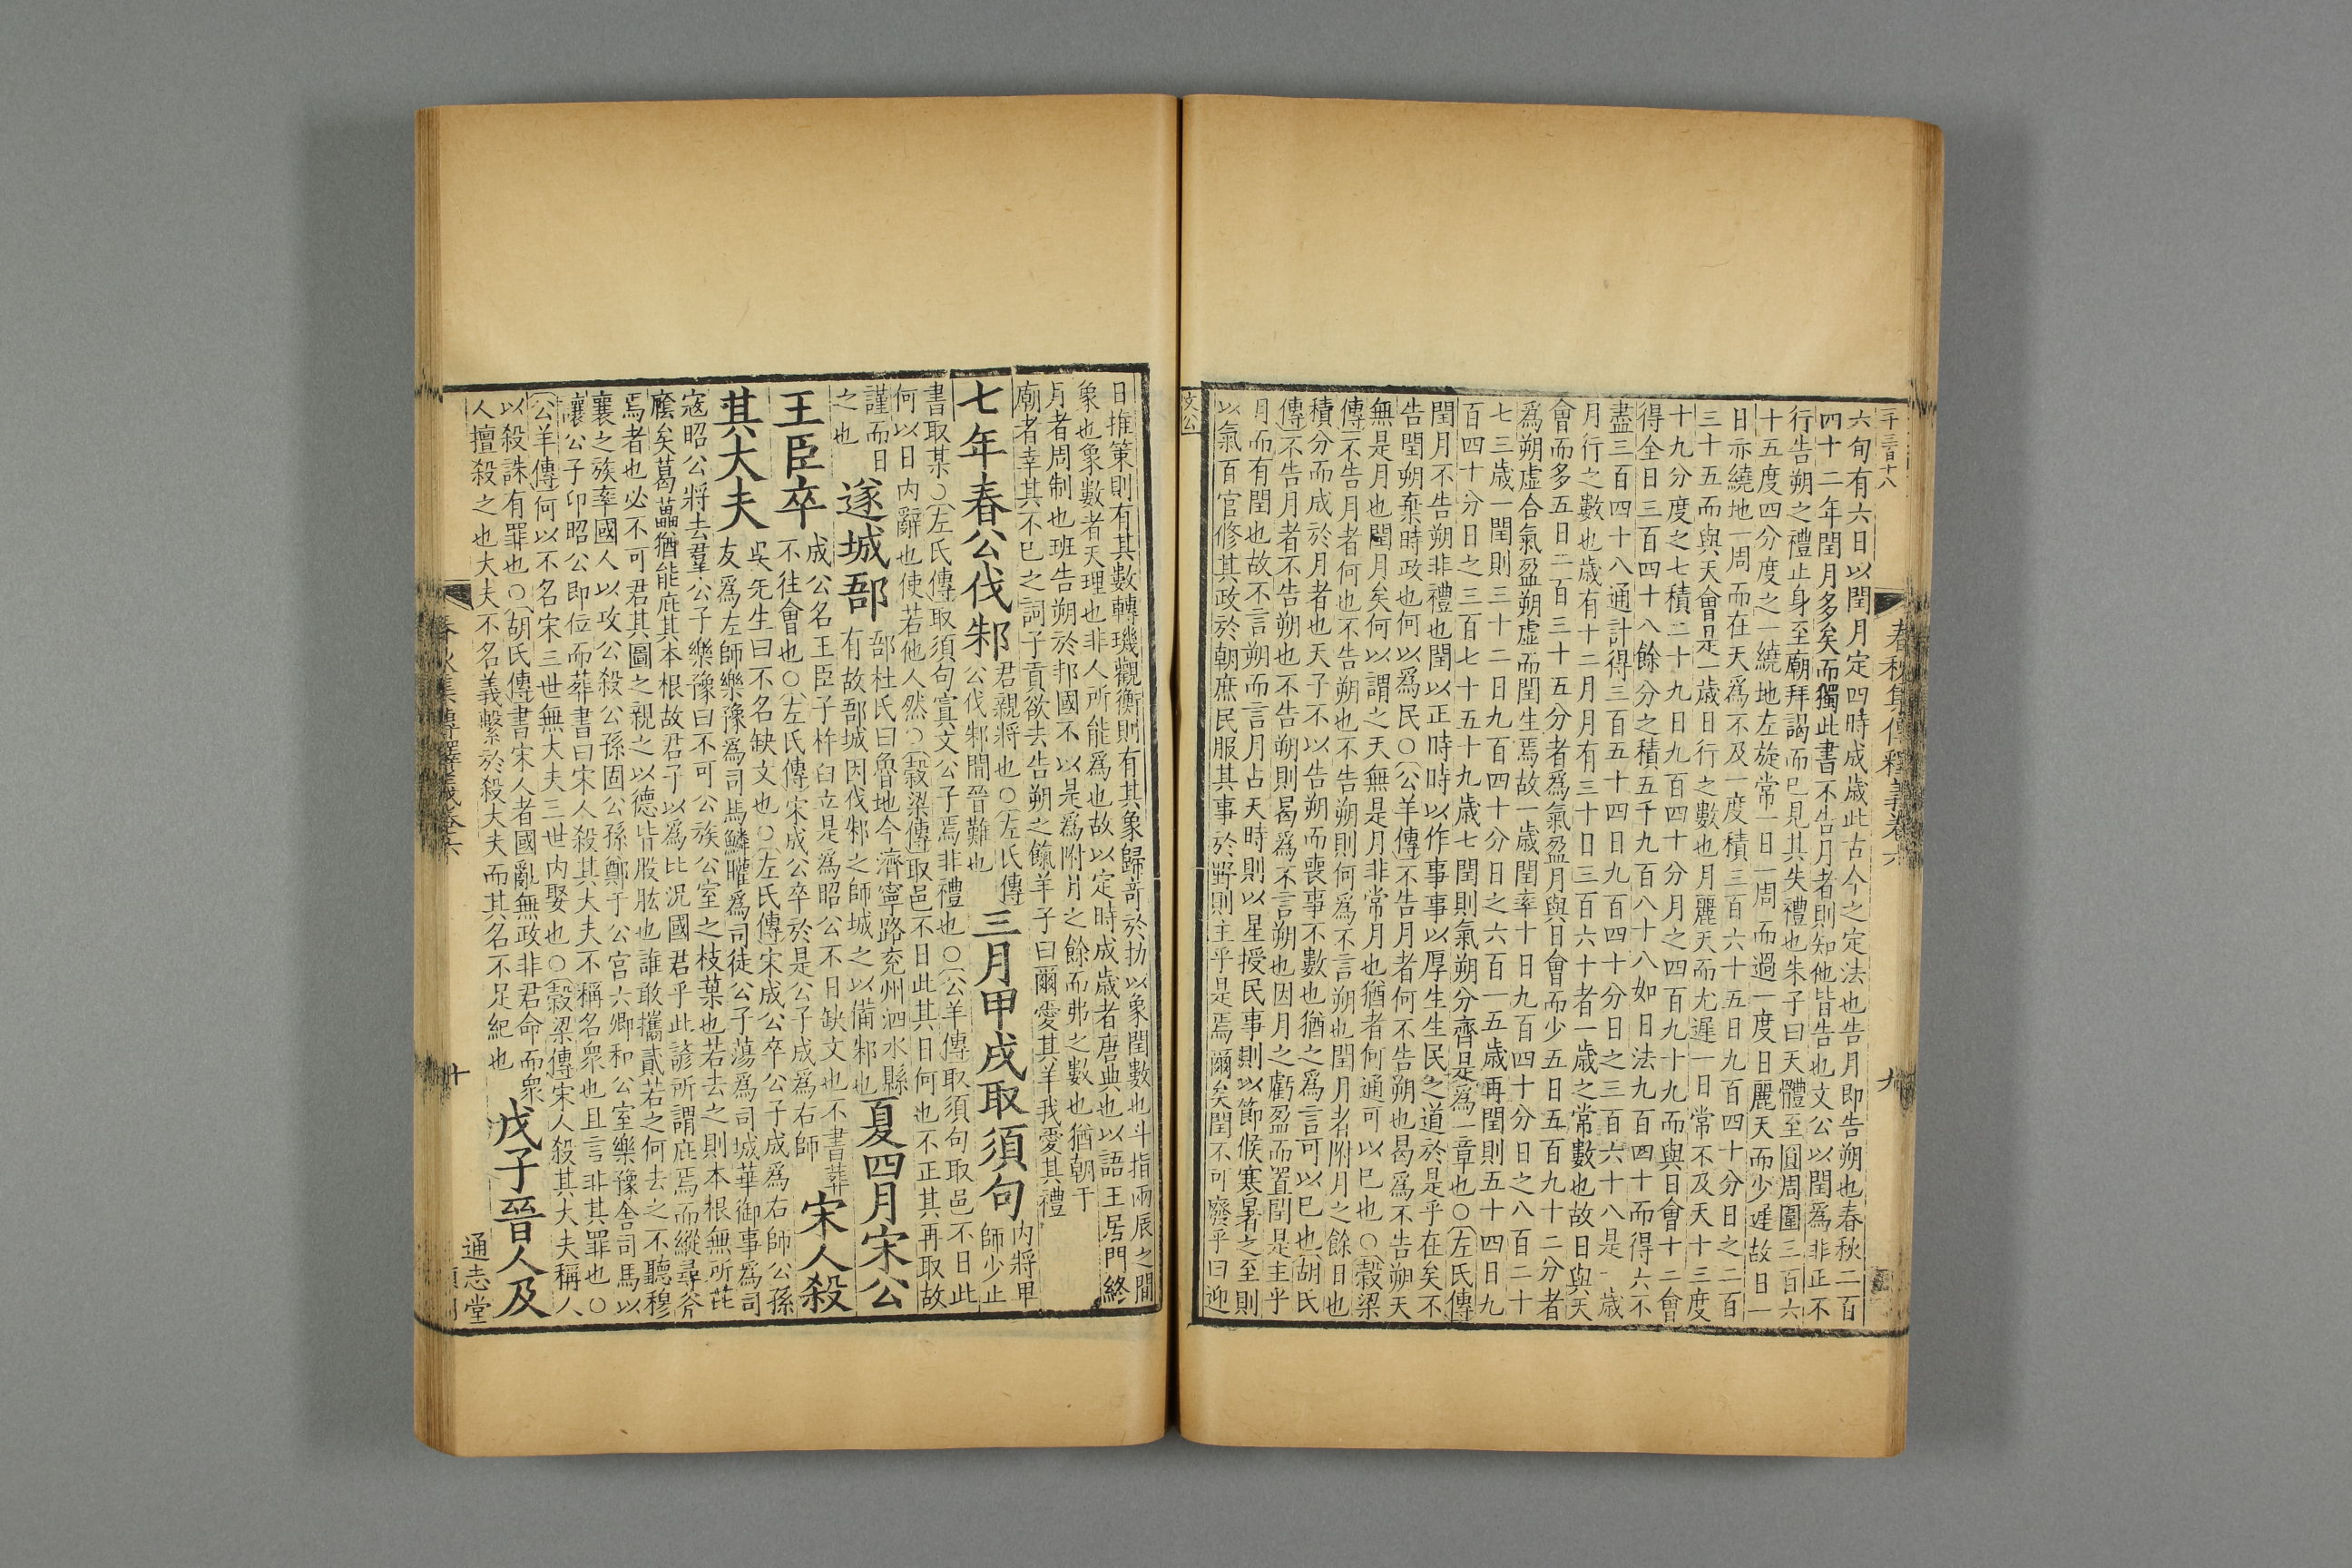 六旬有六日以閏月定四時成歲此古今之定法也告月即告朔也春秋二百
四十二年閏月多矣而獨此書不告月者則知他皆告也文公以閏爲非正不
行告朔之禮止身至廟拜謁而已見其失禮也朱子曰天體至圓周圍三百六
十五度四分度之一繞地左旋常一日一周而過一度日麗天而少遲故日一
日亦繞地一周而在天爲不及一度積三百六十五日九百四十分日之二百
三十五而與天會是一歲日行之數也月麗天而尤遲一日常不及天十三度
十九分度之七積二十九日九百四十分月之四百九十九而與日會十二會
得全日三百四十八餘分之積五千九百八十八如日法九百四十而得六不
盡三百四十八通計得三百五十四日九百四十分日之三百六十八是一歲
月行之數也歲有十二月月有三十日三百六十者一歲之常數也故日與天
會而多五日二百三十五分者爲氣盈月與日會而少五日五百九十二分者
爲朔虛合氣盈朔虛而閏生焉故一歲閏率十日九百四十分日之八百二十
七三歲一閏則三十二日九百四十分日之六百一五歲再閏則五十四日九
百四十分日之三百七十五十九歲七閏則氣朔分齊是爲一章也○左氏傳
閏月不告朔非禮也閏以正時時以作事事以厚生生民之道於是乎在矣不
告閏朔棄時政也何以爲民○公羊傳不告月者何不告朔也曷爲不告朔天
無是月也閏月矣何以謂之天無是月非常月也猶者何通可以已也○穀梁
傳不告月者何也不告朔也不告朔則何爲不言朔也閏月者附月之餘日也
積分而成於月者也天子不以告朔而喪事不數也猶之爲言可以已也胡氏
傳不告月者不告朔也不告朔則曷爲不言朔也因月之虧盈而置閏是主乎
月而有閏也故不言朔而言月占天時則以星授民事則以節候寒暑之至則
以氣百官修其政於朝庶民服其事於野則主乎是焉爾矣閏不可廢乎曰迎
文公
春秋集傳釋義卷六
九
日推策則有其數轉璣觀衡則有其象歸奇於扐以象閏數也斗指兩辰之間
象也象數者天理也非人所能爲也故以定時成歲者唐典也以語王居門終
月者周制也班告朔於邦國不以是爲附月之餘而弗之數也猶朝于
廟者幸其不已之詞子貢欲去告朔之餼羊子曰爾愛其羊我愛其禮
七年春公伐邾 君親將也○左氏傳公伐邾間晉難也 三月甲戌取須句 內將甲師少止
書取某○左氏傳取須句寘文公子焉非禮也○公羊傳取須句取邑不日此
何以日內辭也使若他人然○穀梁傳取邑不日此其日何也不正其再取故
謹而日之也 遂城郚 郚杜氏曰魯地今濟寧路兖州泗水縣有故郚城因伐邾之師城之以備邾也 夏四月宋公
王臣卒 成公名王臣子杵臼立是爲昭公不日缺文也不書葬不往會也○左氏傳宋成公卒於是公子成爲右師 宋人殺
其大夫 吳先生曰不名缺文也○左氏傳宋成公卒公子成爲右師公孫友爲左師樂豫爲司馬鱗矔爲司徒公子蕩爲司城華御事爲司
寇昭公將去羣公子樂豫曰不可公族公室之枝葉也若去之則本根無所芘
廕矣葛藟猶能庇其本根故君子以爲比況國君乎此諺所謂庇焉而縱尋斧
焉者也必不可君其圖之親之以德皆股肱也誰敢攜貳若之何去之不聽穆
襄之族率國人以攻公殺公孫固公孫鄭于公宮六卿和公室樂豫舍司馬以
讓公子卬昭公即位而葬書曰宋人殺其大夫不稱名衆也且言非其罪也○
公羊傳何以不名宋三世無大夫三世內娶也○穀梁傳宋人殺其大夫稱人
以殺誅有罪也○胡氏傳書宋人者國亂無政非君命而衆
人擅殺之也大夫不名義繫於殺大夫而其名不足紀也 戊子晉人及
春秋集傳釋義卷六
十
通志堂